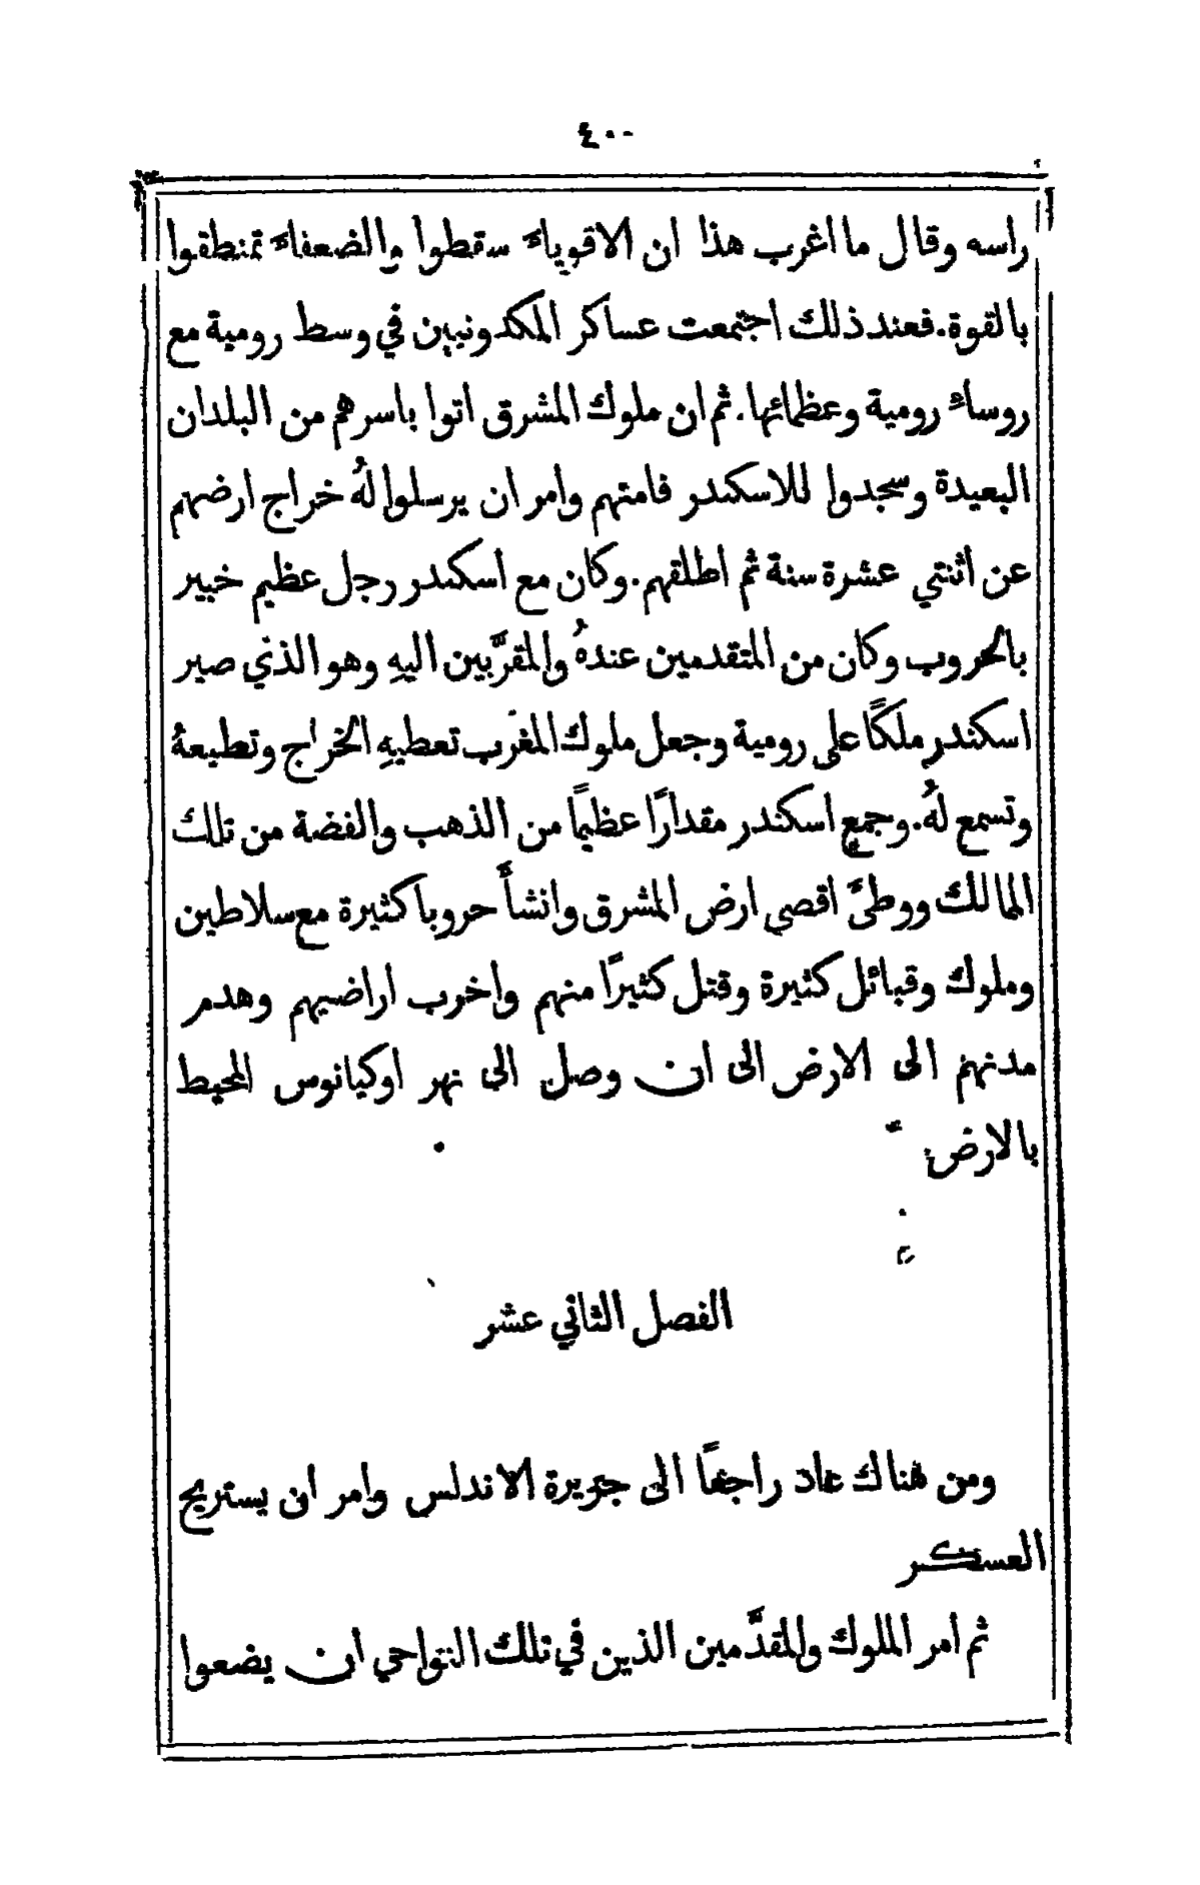 ٤٠٠
راسه وقال ما اغرب هذا ان الاقوياءَ سقطوا والضعفاءَ تمنطقوا
بالقوة. فعند ذلك اجتمعت عساكر المكدونيين في وسط رومية مع
روساءِ رومية وعظمائها. ثم ان ملوك المشرق اتوا باسرهم من البلدان
البعيدة وسجدوا للاسكندر فامتهم وامر ان يرسلوا لهُ خراج ارضهم
عن اثنتي عشرة سنة ثم اطلقهم. وكان مع اسكندر رجل عظيم خبير
بالحروب وكان من المتقدمين عندهُ والمقرَّبين اليهِ وهو الذي صير
اسكندر ملكًا على رومية وجعل ملوك المغرب تعطيهِ الخراج وتطيعهُ
وتسمع لهُ. وجمع اسكندر مقدارًا عظيمًا من الذهب والفضة من تلك
الممالك ووطئَ اقصي ارض المشرق وانشأَ حروبا كثيرة مع سلاطين
وملوك وقبائل كثيرة وقتل كثيرًا منهم واخرب اراضيهم وهدم
مدنهم الى الارض الى ان وصل الى نهر اوكيانوس المحيط
بالارض
الفصل الثاني عشر
ومن هناك عاد راجعًا الى جزيرة الاندلس وامر ان يستريح
العسكر
ثم امر الملوك والمقدَّمين الذين في تلك النواحي ان يضعوا